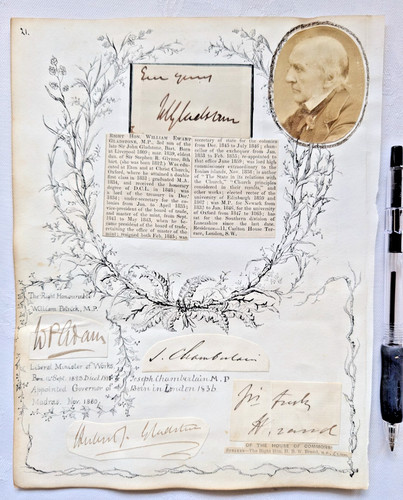 Ever yours
WEGladstone
RIGHT HON. WILLIAM EWART
GLADSTONE, M.P., 3rd son of the
late Sir John Gladstone, Bart. Born
at Liverpool 1809; mar. 1839, eldest
dau. of Sir Stephen R. Glynne, 8th
bart. (she was born 1812.) Was edu-
cated at Eton and at Christ Church,
Oxford, where he obtained a double
first class in 1831; graduated M.A.
1834, and received the honorary
degree of D.C.L. in 1848; was
a lord of the treasury in Dec.
1834; under-secretary for the co-
lonies from Jan. to April 1835;
vice-president of the board of trade,
and master of the mint, from Sept.
1841 to May 1843, when he be-
came president of the board of trade,
retaining the office of master of the
mint; resigned both Feb. 1845; was
secretary of state for the colonies
from Dec. 1845 to July 1846; chan-
cellor of the exchequer from Jan.
1853 to Feb. 1855; re-appointed to
that office June 1859; was lord high
commissioner extraordinary to the
Ionian islands, Nov. 1858; is author
of "The State in its relations with
the Church," "Church principles
considered in their results," and
other works; elected rector of the
university of Edinburgh 1859 and
1862; was M.P. for Newark from
1832 to Jan. 1846, for the university
of Oxford from 1847 to 1865; has
sat for the Southern division of
Lancashire since the last date.
Residence—11, Carlton House Ter-
race, London, S.W.
The Right Honourable
William Patrick, M.P.
WPAdam
Liberal Minister of Works
Appointed Governor of
Madras Nov. 1880.
J. Chamberlain
Joseph Chamberlain M.P
Born in London 1836
Herbert J. Gladstone
H. Brand
OF THE HOUSE OF COMMONS